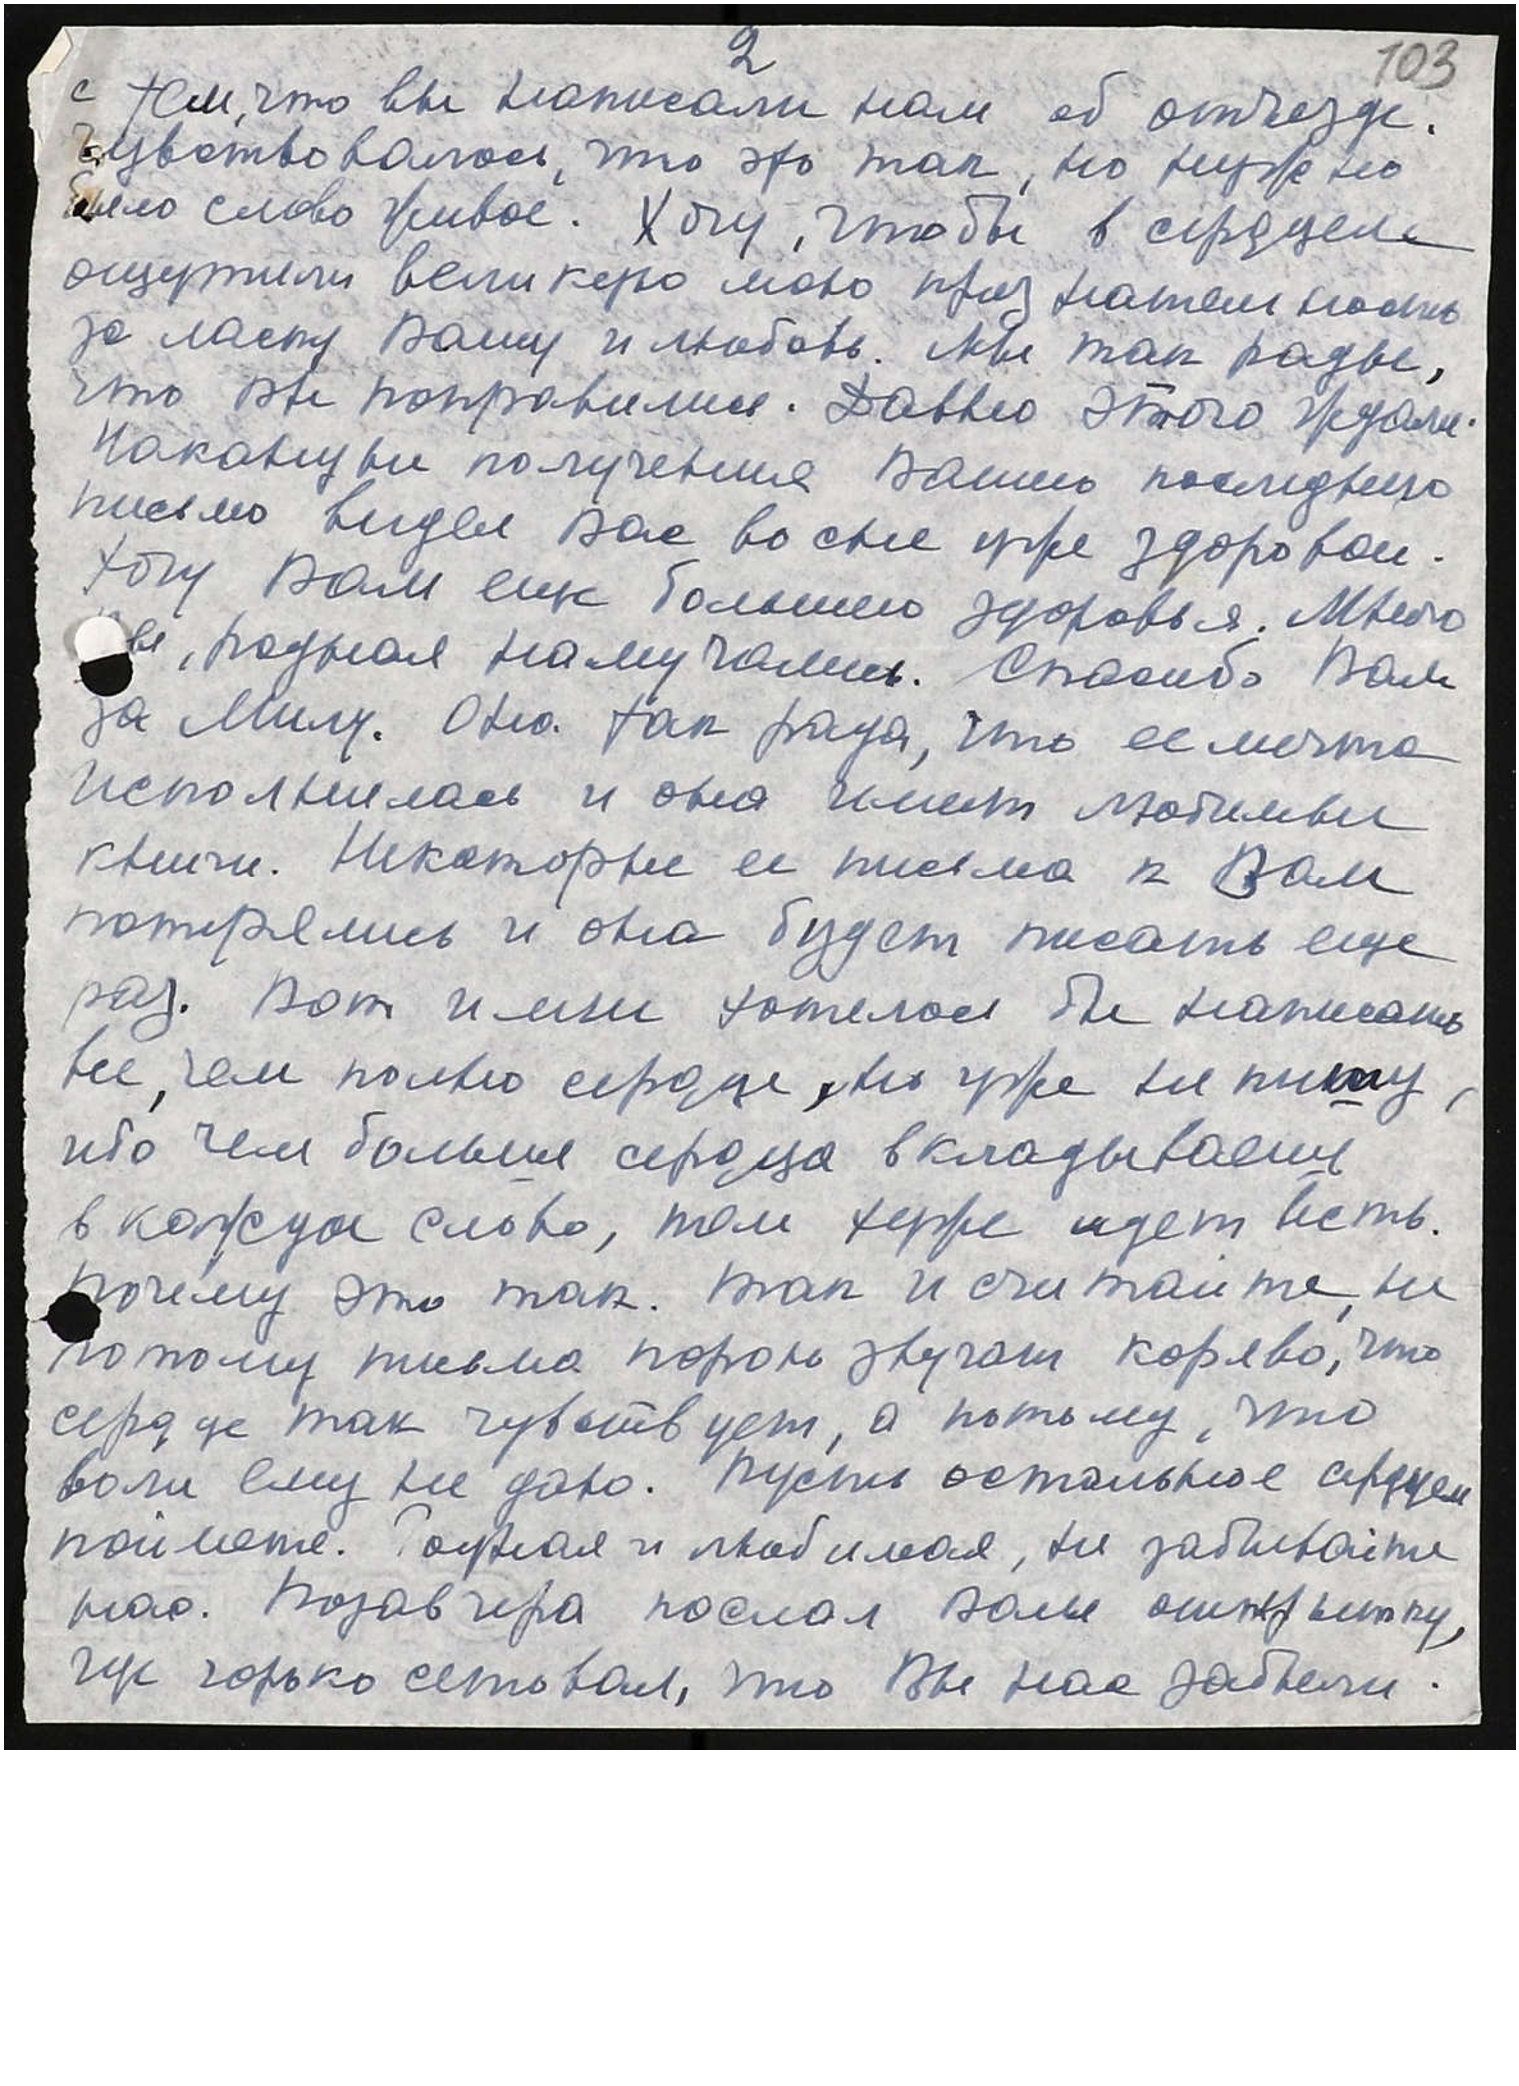 2
103
с тем, что вы написали нам об отъезде.
Чувствовалось, что это так, но нужно
было слово живое. Хочу, чтобы в сердцем
ощутили великую мою признательность
за ласку Вашу и любовь. Мы так рады,
что Вы поправились. Давно этого ждали.
Накануне получения Вашего последнего
письма видел Вас во сне уже здоровой.
Хочу Вам еще большего здоровья. Много
Вы, родная намучались. Спасибо Вам
за Милу. Она так рада, что ее мечта
исполнилась и она имеет любимые
книги. Некоторые ее письма к Вам
потерялись и она будет писать еще
раз. Вот и мне хотелось бы написать
все, чем полно сердце, но уже не пишу,
ибо чем больше сердца вкладываешь
в каждое слово, тем хуже идет весть.
Почему это так. Так и считайте, не
потому письма порою звучат коряво, что
сердце так чувствует, а потому, что
воли ему не дано. Пусть остальное сердцем
поймете. Родная и любимая, не забывайте
нас. Позавчера послал Вам открытку,
где горько сетовал, что Вы нас забыли.